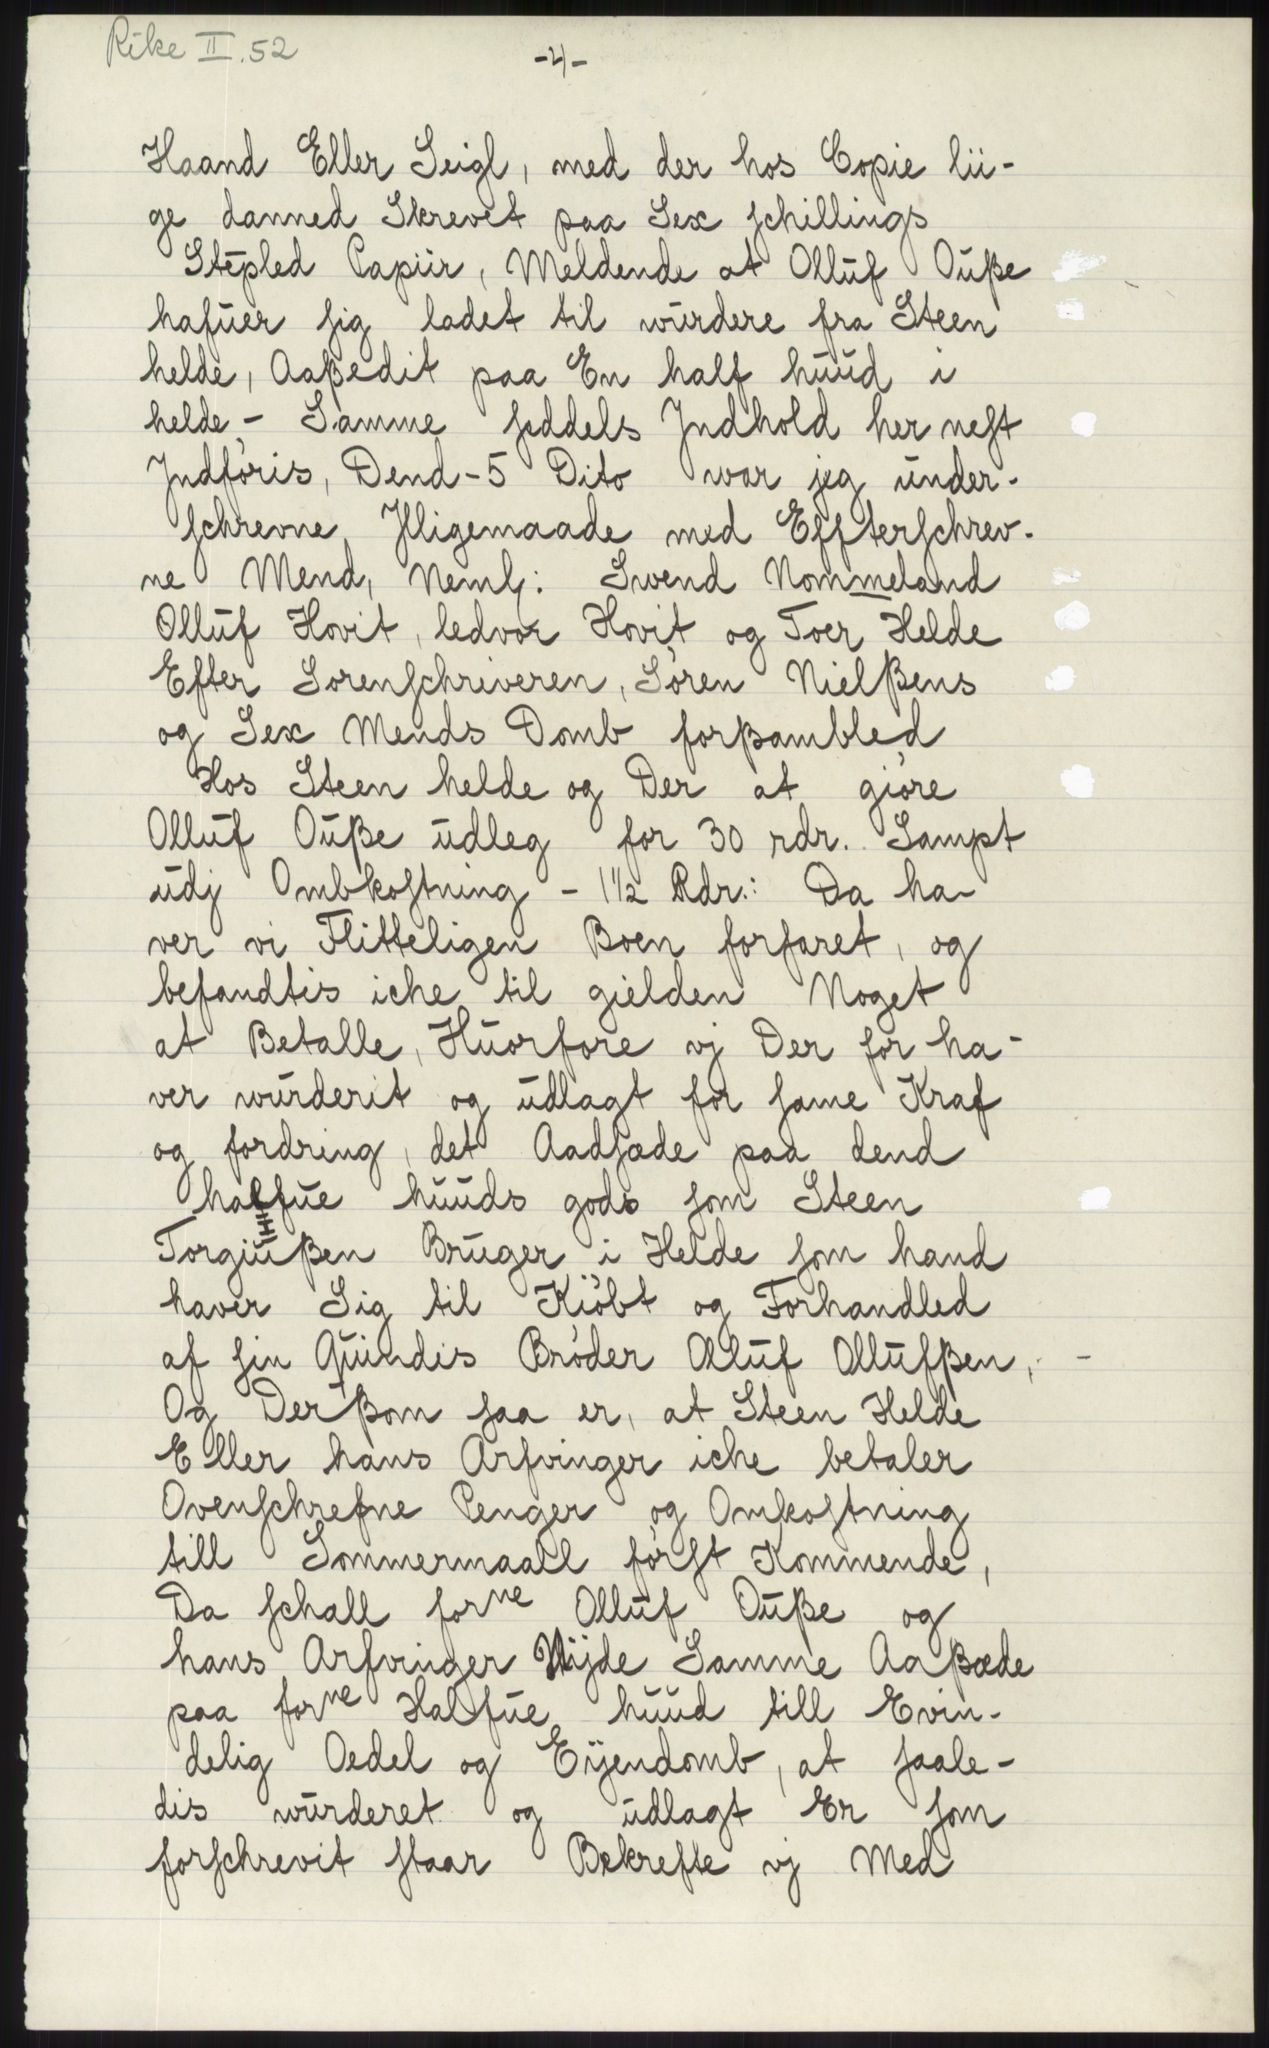 Rike II. 52
-4-
Haand Eller Seigl, med der hos Copie lii-
ge danned Skrevet paa Sex schillings
Stepled Papiir, Meldende at Olluf Ouße
hafuer sig ladet til wurdere fra Steen
helde, Aaßedit paa En half huud i
helde - Samme seddels Jndhold her nest
Jndføris, Dend - 5 Dito war jeg under-
schrevne Jlligemaade med Effterschrev-
ne Mend, Neml: Swend Nommeland
Olluf Hovit, ledvor Hovit og Toer Helde
Efter Sorenschriveren, Søren Nielßens
og Sex Mends Domb forßambled
Hos Steen helde og Der at giøre
Olluf Ouße udleg for 30 rdr. Sampt
udj Ombkostning - 1½ Rdr.: Da ha-
ver vi Flitteligen Boen forfaret, og
befandtis iche til gielden Noget
at Betalle, Huorfore vj Der for ha-
ver wurderit og udlagt for same Kraf
og fordring, det Aadsæde paa dend
halfue huuds gods som Steen
Torgiußen Bruger i Helde som hand
haver Sig til Kiøbt og Forhandled
af sin Quindis Brøder Olluf Ollufßen,
Og Derßom saa er, at Steen Helde
Eller hans Arfvinger iche betaler
Ovenschrefne Penger og Omkostning
till Sommermaall først Kommende,
Da schall forne Olluf Ouße og
hans Arfvinger Nijde Samme Aaßæde
paa forne Halfue huud till Evin-
delig Oedel og Eijendomb, at saale-
dis wurderet og udlagt Er som
forschrevit staar Bekrefte vj Med